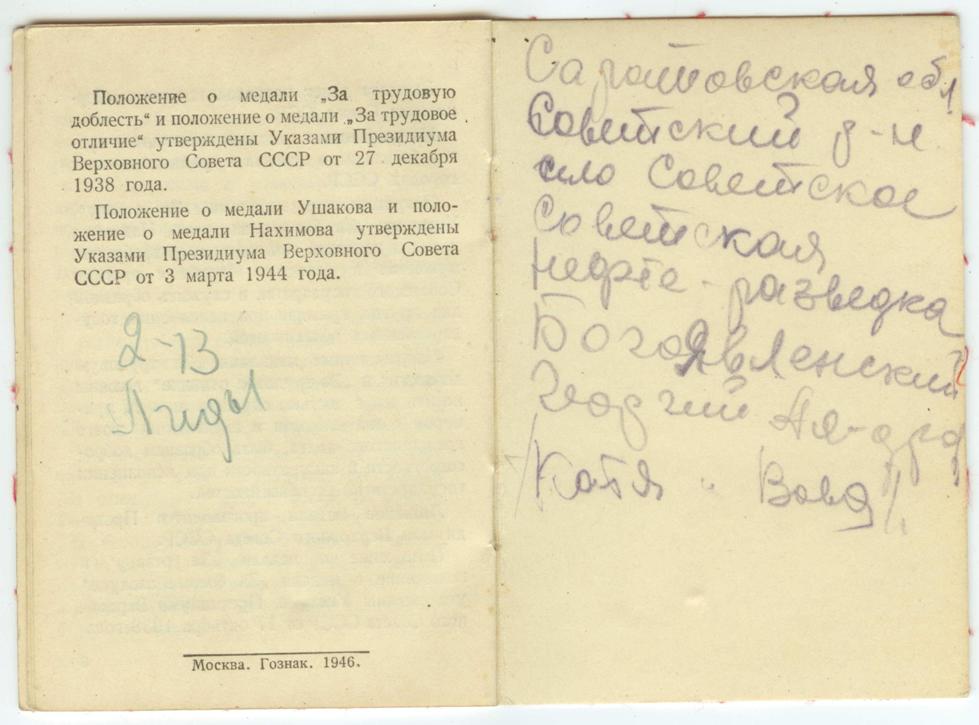 Положение о медали „За трудовую
доблесть“ и положение о медали „За трудовое
отличие“ утверждены Указами Президиума
Верховного Совета СССР от 27 декабря
1938 года.
Положение о медали Ушакова и поло-
жение о медали Нахимова утверждены
Указами Президиума Верховного Совета
СССР от 3 марта 1944 года.
2-13
Москва. Гознак. 1946.
Саратовская обл
Советский р-н
село Советское
Советская
Нефте-разведка
Богоявленский
Георгий
/Катя и Вова/.